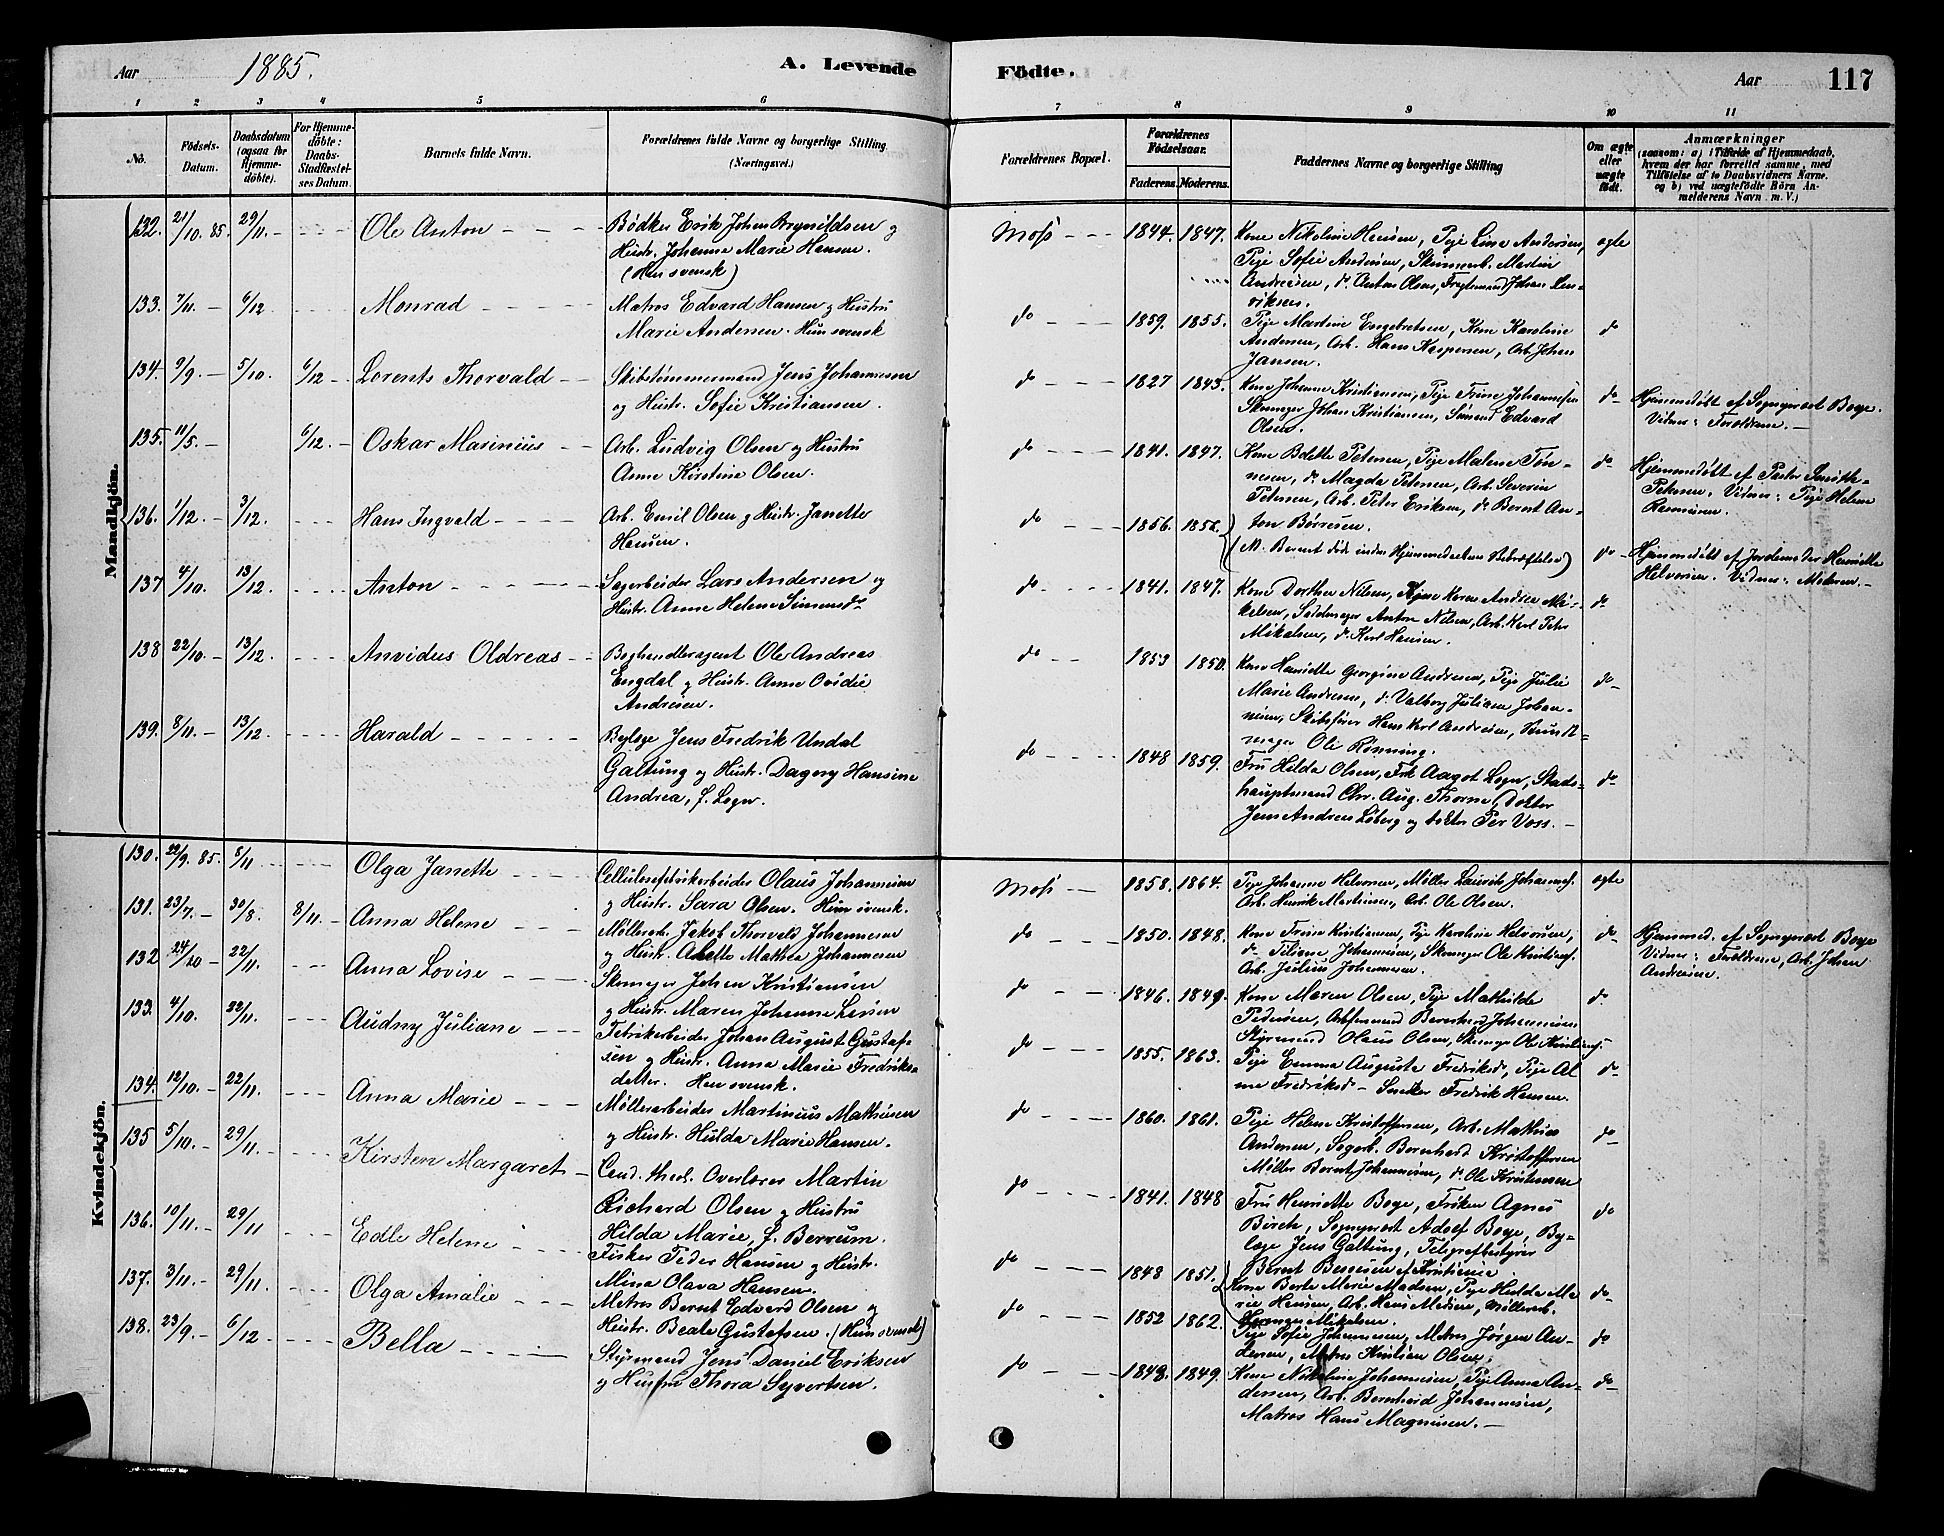 Aar 1885. A. Levende Födte. Aar 117
1 2 3 4 5 6 7 8 9 10 11
No.
Födsels-Datum.
Daabsdatum (ogsaa for Hjemmedöbte).
For Hjemmedöbte: Daabs-Stadfæstelses Datum.
Barnets fulde Navn.
Forældrenes fulde Navne og borgerlige Stilling (Næringsvei.)
Forældrenes Bopæl.
Forældrenes Födselsaar.
Faderens. Moderens.
Faddernes Navne og borgerlige Stilling
Om ægte eller uægte födt.
Anmærkninger
(saasom: a) i Tilfælde af Hjemmedaab,
hvem der har forrettet samme, med
Tilföielse af to Daabsvidners Navne.
og b) ved uægtefödte Börn An-
melderens Navn m. V.)
Mandkjön.
132. 21/10. 85. 29/11. Ole Anton
Bødker Erik Johan Brynildsen og
Hustr. Johanne Marie Hansen.
(Hun svensk)
Moss 1844. 1847.
Kone Nikoline Hansen, Pige Line Andersen,
Pige Sofie Andersen, Skinnerb. Martin
Andresen, do Anton Olsen, Fragtemand Johan
ægte
133. 7/11. 6/12 Monrad
Matros Edvard Hansen og Hustru
Marie Andersen. Hun svensk
do 1859. 1855.
Pige Martine Engebretsen, Kone Karoline
Andersen, Arb. Hans Kaspersen, Arb. Johan
Jansen.
do
134. 9/9. 5/10. 6/12 Lorents Thorvald
Skibstømmermand Jens Johannesen
og Hustr. Sofie Kristiansen.
do 1827 1843.
Kone Johanne Kristiansen, Pige Trine Johannesen
Skomager Johan Kristiansen, Sømand Edvard
Olsen.
do
Hjemmedøbt af Sogneprest Boye.
Vidner: Forældrene.
135. 11/5. 6/12. Oskar Marinius
Arb. Ludvig Olsen og Hustru
Anne Kirstine Olsen.
do 1841. 1847.
Kone Bolette Petersen, Pige Malene Tøn-
nesen, do Magda Petersen, Arb. Severin
Petersen, Arb. Peter Eriksen, do Bernt An-
ton Børresen.
do
Hjemmedøbt af Pastor Smith-
Petersen. Vidner: Pige Helene
Rasmusen.
136. 1/12. 3/12. Hans Ingvald
Arb. Emil Olsen og Hustr. Janette
Hansen.
do 1856.
do
Hjemmedøbt af Jordemoder Henriette
Halvorsen. Vidner: Moderen.
137 4/10. 13/12. Anton
Sagarbeider Lars Andersen og
Hustr. Anne Helene Simensdr
do 1841. 1847.
Kone Dorthea Nilsen, Pige Karen Andrea Mi-
kelsen, Seilmager Anton Nilsen, Arb. Karl Peter
Mikalsen, do Karl Hansen.
do
138 22/10. 13/12. Anvidus Oldreas
Boghandleragent Ole Andreas
Engdal og Hustr. Anne Ovidie
Andresen.
do 1853 1850.
Kone Henriette Georgine Andresen, Pige Julie
Marie Andresen, do Valborg Juliane Johan-
nesen, Skibsfører Hans Karl Andresen, Bundt-
mager Ole Rønning.
do
139. 8/11. 13/12. Harald
Bylæge Jens Fredrik Undal
Galtung og Hustr. Dagny Hansine
Andrea, f. Logn.
do 1848 1859.
Fru Hilda Olsen, Frk Aagot Logn, Stads-
hauptmand Chr. Aug. Thorne, Doktor
Jens Andreas Løberg og Doktor Per Voss.
do
Kvindekjön.
130. 22/9. 85. 8/11. Olga Janette
Cellulosefabrikarbeider Olaus Johannesen
og Hustr. Sara Olsen. Hun svensk.
Moss 1858. 1864.
Pige Johanne Halvorsen, Møller Laurits Johannes.
Arb. Henrik Martinsen, Arb. Ole Olsen.
ægte
131. 23/7. 30/8. 8/11. Anna Helene
Møllerarb. Jakob Thorvald Johannesen
og Hustr. Anette Mathea Johannesen
do 1850. 1848.
Kone Trine Kristiansen, Pige Karoline Halvorsen,
do Tiliane Johannesen, Skomager Ole Kristians.
Arb. Julius Johannesen.
do
Hjemmed. af Sogneprest Boye
Vidner: Forældrene, Arb. Johan
Andresen.
132 24/10 22/11. Anna Lovise
Skomager Johan Kristiansen
og Hustr. Maren Johanne Larsen
do 1846. 1849.
Kone Maren Olsen, Pige Mathilde
Pedersen, Arbformand Bernhard Johannesen
Styrmand Olaus Olsen, Skomager Ole Kristians.
do
133. 4/10. 22/11. Audny Juliane
Fabrikarbeider Johan August Gustaf-
sen og Hustr. Anna Marie Fredriks-
datter. Hun svensk.
do 1855. 1863.
Pige Emma Auguste Fredriksd., Pige Al-
ma Fredriksd. Snedker Fredrik Hansen.
do
134. 12/10. 22/11. Anna Marie
Møllerarbeider Martinius Mathisen
og Hustr. Hulda Marie Hansen.
do 1860. 1861.
Pige Helene Kristoffersen, Arb. Mathias
Andersen, Sagarb. Bernhard Kristoffersen
Møller Bernt Johannesen, do Ole Kristensen
do
135 5/10. 29/11. Kirsten Margaret
Cand. theol. Overlærer Martin
Richard Olsen og Hustru
Hilda Marie, f. Berrum.
do 1841. 1848
Fru Henriette Boye, Frøken Agnes
Birch, Sogneprest Adolf Boye, By-
læge Jens Galtung, Telegrafbestyrer
Bernt Børresen af Kristiania.
do
136. 10/11. 29/11 Edle Helene
Fisker Peder Hansen og Hustr.
Mina Olava Hansen.
do 1848 1851.
Kone Berte Marie Madsen, Pige Hulda Ma-
rie Hansen, Arb. Hans Madsen, Møllerarb.
Mikalsen.
do
137. 3/11. 29/11. Olga Amalie
Matros Bernt Edvard Olsen og
Hustr. Beate Gustafsen. (Hun svensk)
do 1852 1862.
Pige Sofie Johannesen, Matros Jørgen An-
dersen, Matros Kristian Olsen.
do
138. 23/9. 6/12 Bella
Styrmand Jens Daniel Eriksen
og Hustru Thora Syvertsen.
do 1848. 1849.
Kone Nikoline Johannesen, Pige Anna An-
dersen, Arb. Bernhard Johannesen,
Matros Hans Magnusen.
do